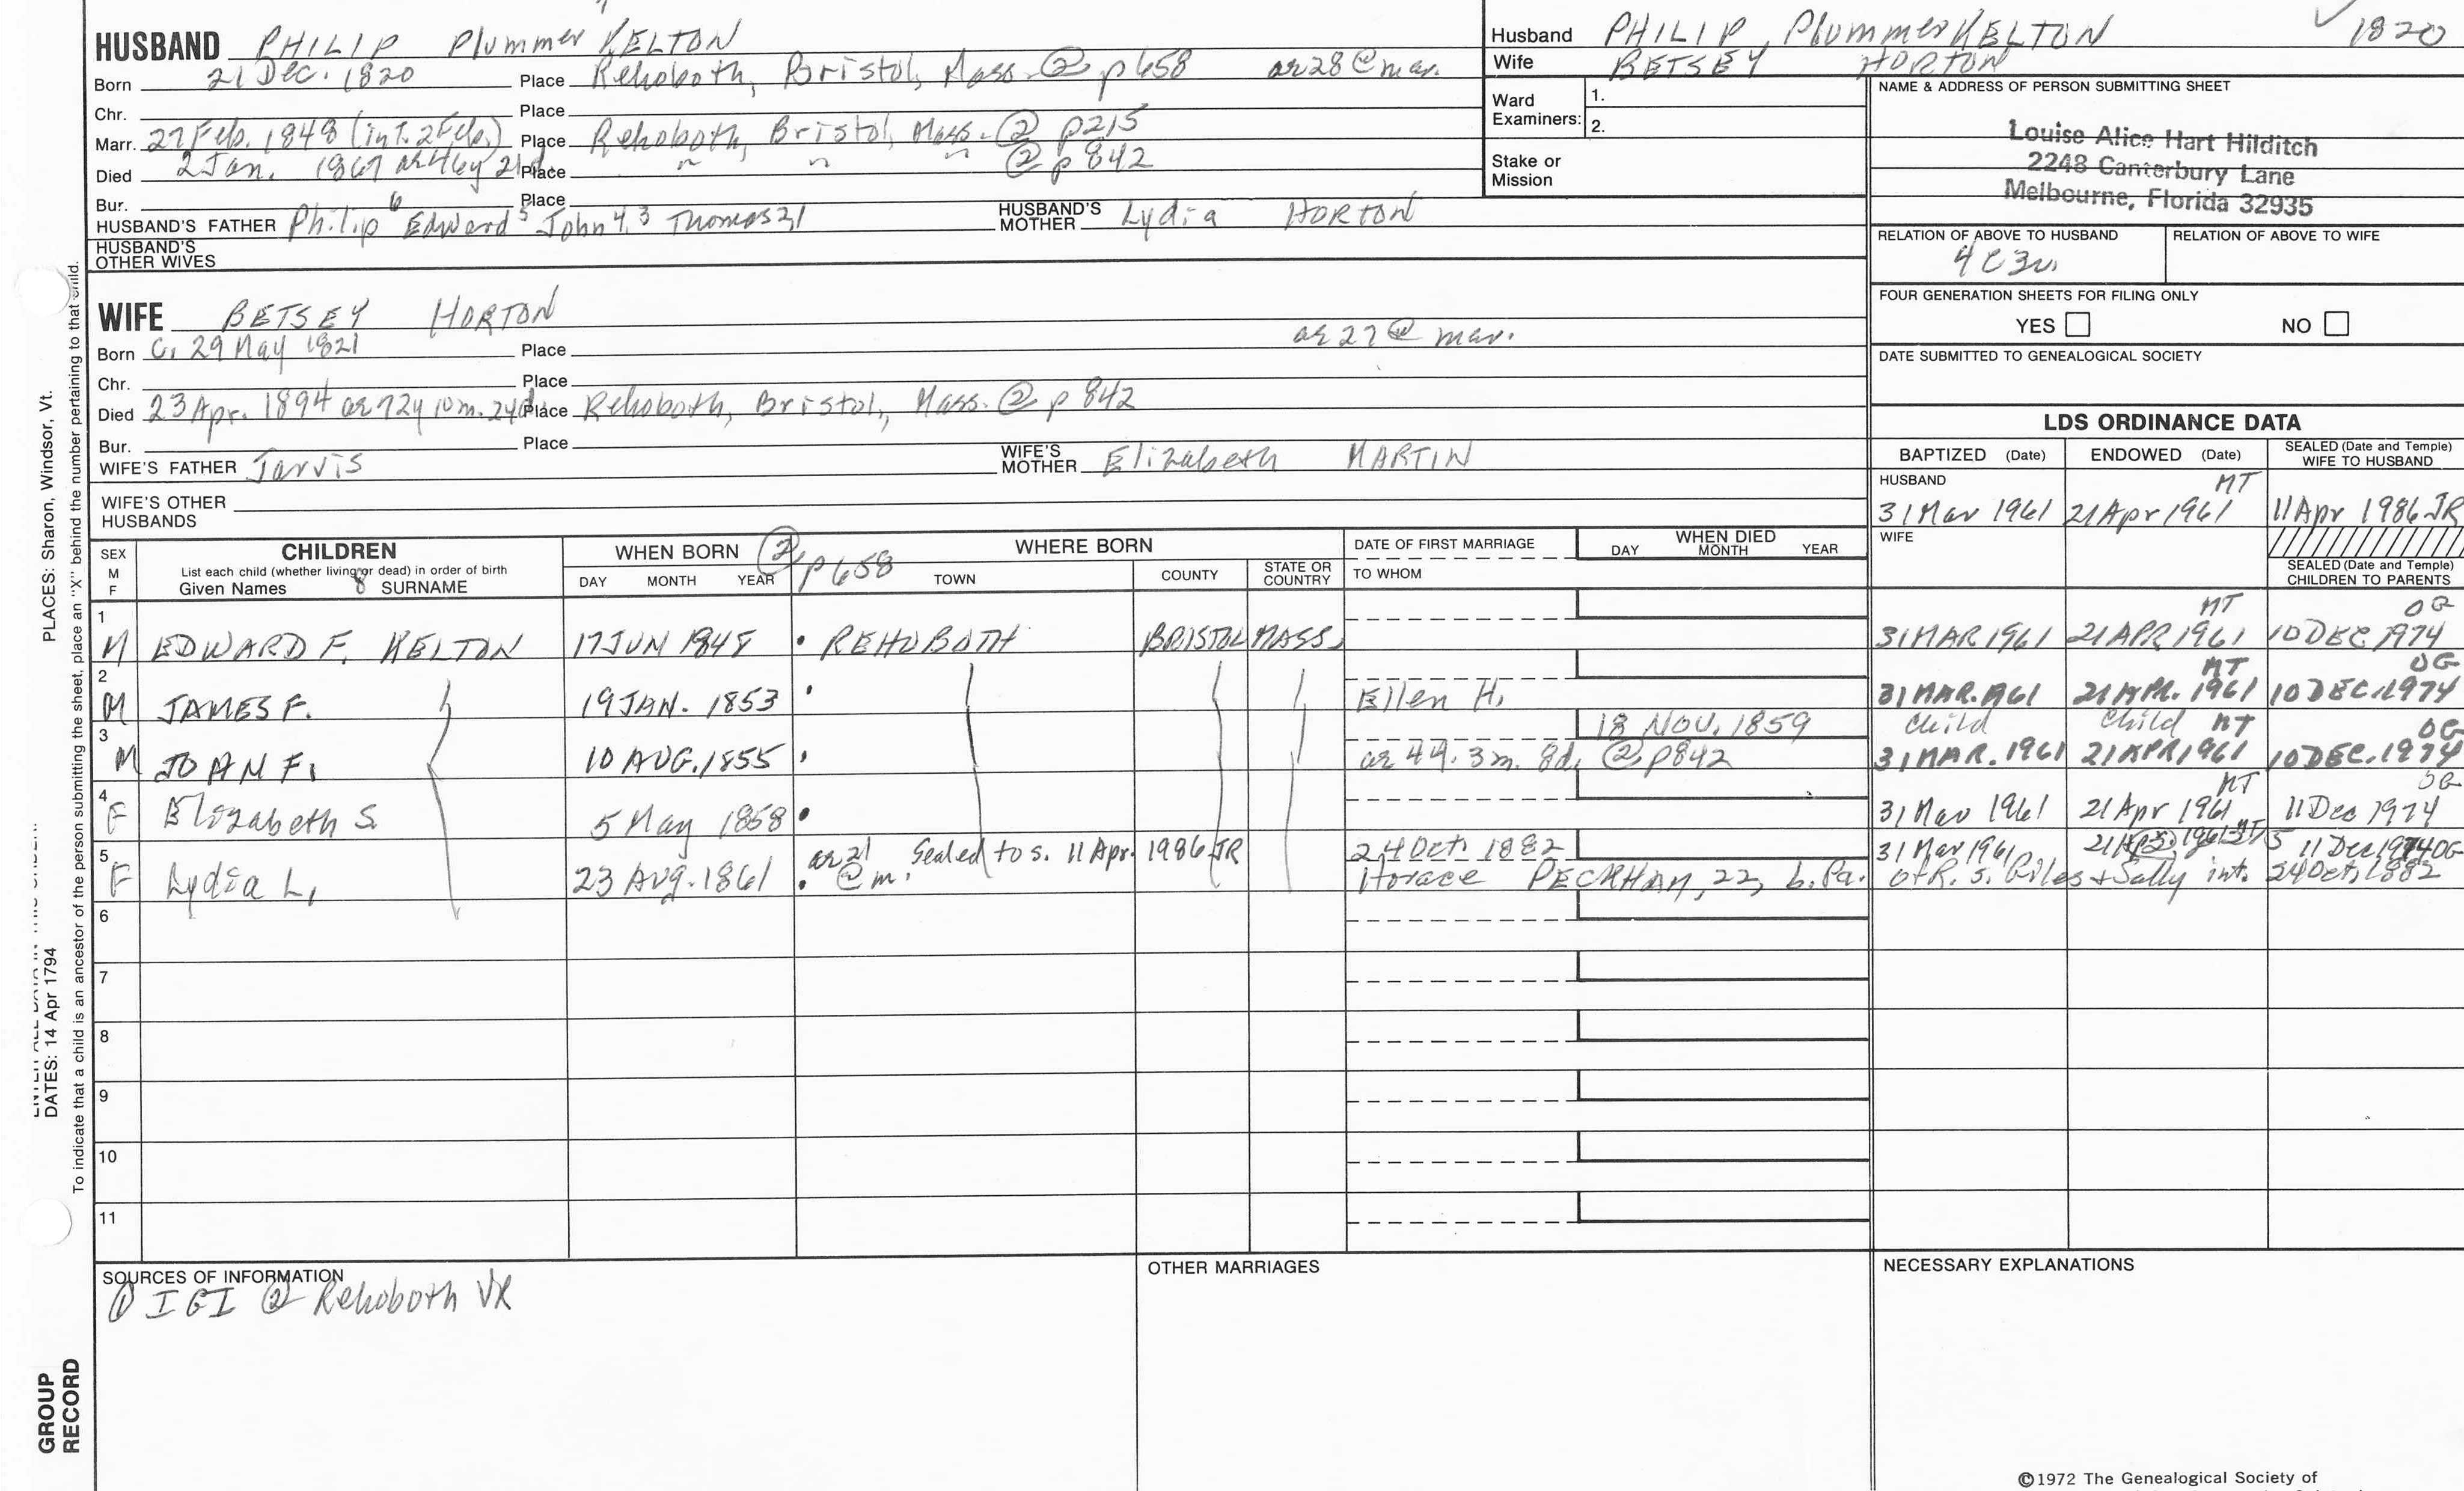 HUSBAND PHILIP Plummer KELTON
Born 21 Dec. 1820 Place Rehoboth, Bristol, Mass. ② p658 ae 28 @ mar.
Chr. Place
Marr. 27 Feb. 1848 (int. 2 Feb.) Place Rehoboth, Bristol, Mass. ② p215
Died 2 Jan. 1867 Place " " " ② p 842
Bur. Place
HUSBAND'S FATHER Philip 6 Edward 5 John 4,3 Thomas 2,1 HUSBAND'S MOTHER Lydia HORTON
HUSBAND'S OTHER WIVES
Husband PHILIP Plummer KELTON 1820
Wife BETSEY HORTON
Ward Examiners: 1.
2.
Stake or Mission
NAME & ADDRESS OF PERSON SUBMITTING SHEET
Louise Alice Hart Hilditch
2248 Canterbury Lane
Melbourne, Florida 32935
RELATION OF ABOVE TO HUSBAND RELATION OF ABOVE TO WIFE
4C3r
FOUR GENERATION SHEETS FOR FILING ONLY
YES NO
DATE SUBMITTED TO GENEALOGICAL SOCIETY
WIFE BETSEY HORTON
Born c. 29 May 1821 Place ae 27 @ mar.
Chr. Place
Died 23 Apr. 1894 ae 72y 10m. 24d Place Rehoboth, Bristol, Mass. ② p 842
Bur. Place
WIFE'S FATHER Jarvis WIFE'S MOTHER Elizabeth MARTIN
WIFE'S OTHER HUSBANDS
LDS ORDINANCE DATA
BAPTIZED (Date) ENDOWED (Date) SEALED (Date and Temple) WIFE TO HUSBAND
HUSBAND MT
31 Mar 1961 21 Apr 1961 11 Apr 1986 JR
WIFE
SEALED (Date and Temple) CHILDREN TO PARENTS
SEX M F CHILDREN WHEN BORN ② p658 WHERE BORN DATE OF FIRST MARRIAGE WHEN DIED
List each child (whether living or dead) in order of birth
Given Names 8 SURNAME DAY MONTH YEAR TOWN COUNTY STATE OR COUNTRY TO WHOM DAY MONTH YEAR
1 MT OG
M EDWARD F. KELTON 17 JUN 1848 REHOBOTH BRISTOL MASS. 31 MAR 1961 21 APR 1961 10 DEC 1974
2 MT OG
M JAMES F. 19 JAN. 1853 Ellen H. 31 MAR. 1961 21 APR. 1961 10 DEC. 1974
3 18 NOV. 1859 child child MT OG
M JOAN F. 10 AUG. 1855 ae 4y. 3m. 8d. ② p842 31 MAR. 1961 21 APR 1961 10 DEC. 1974
4 MT OG
F Elizabeth S. 5 May 1858 31 Mar 1961 21 Apr 1961 11 Dec 1974
5 ae 21 @ m. Sealed to s. 11 Apr. 1986 JR 24 Oct. 1882 31 Mar 1961 11 Dec 1974 OG
F Lydia L. 23 AUG. 1861 Horace PECKHAM, 22, b. Pa. of R. s. Giles + Sally int. 24 Oct. 1882
6
7
8
9
10
11
SOURCES OF INFORMATION
① IGI ② Rehoboth VR
OTHER MARRIAGES
NECESSARY EXPLANATIONS
©1972 The Genealogical Society of
PLACES: Sharon, Windsor, Vt.
DATES: 14 Apr 1794
To indicate that a child is an ancestor of the person submitting the sheet, place an "X" behind the number pertaining to that child.
GROUP
RECORD